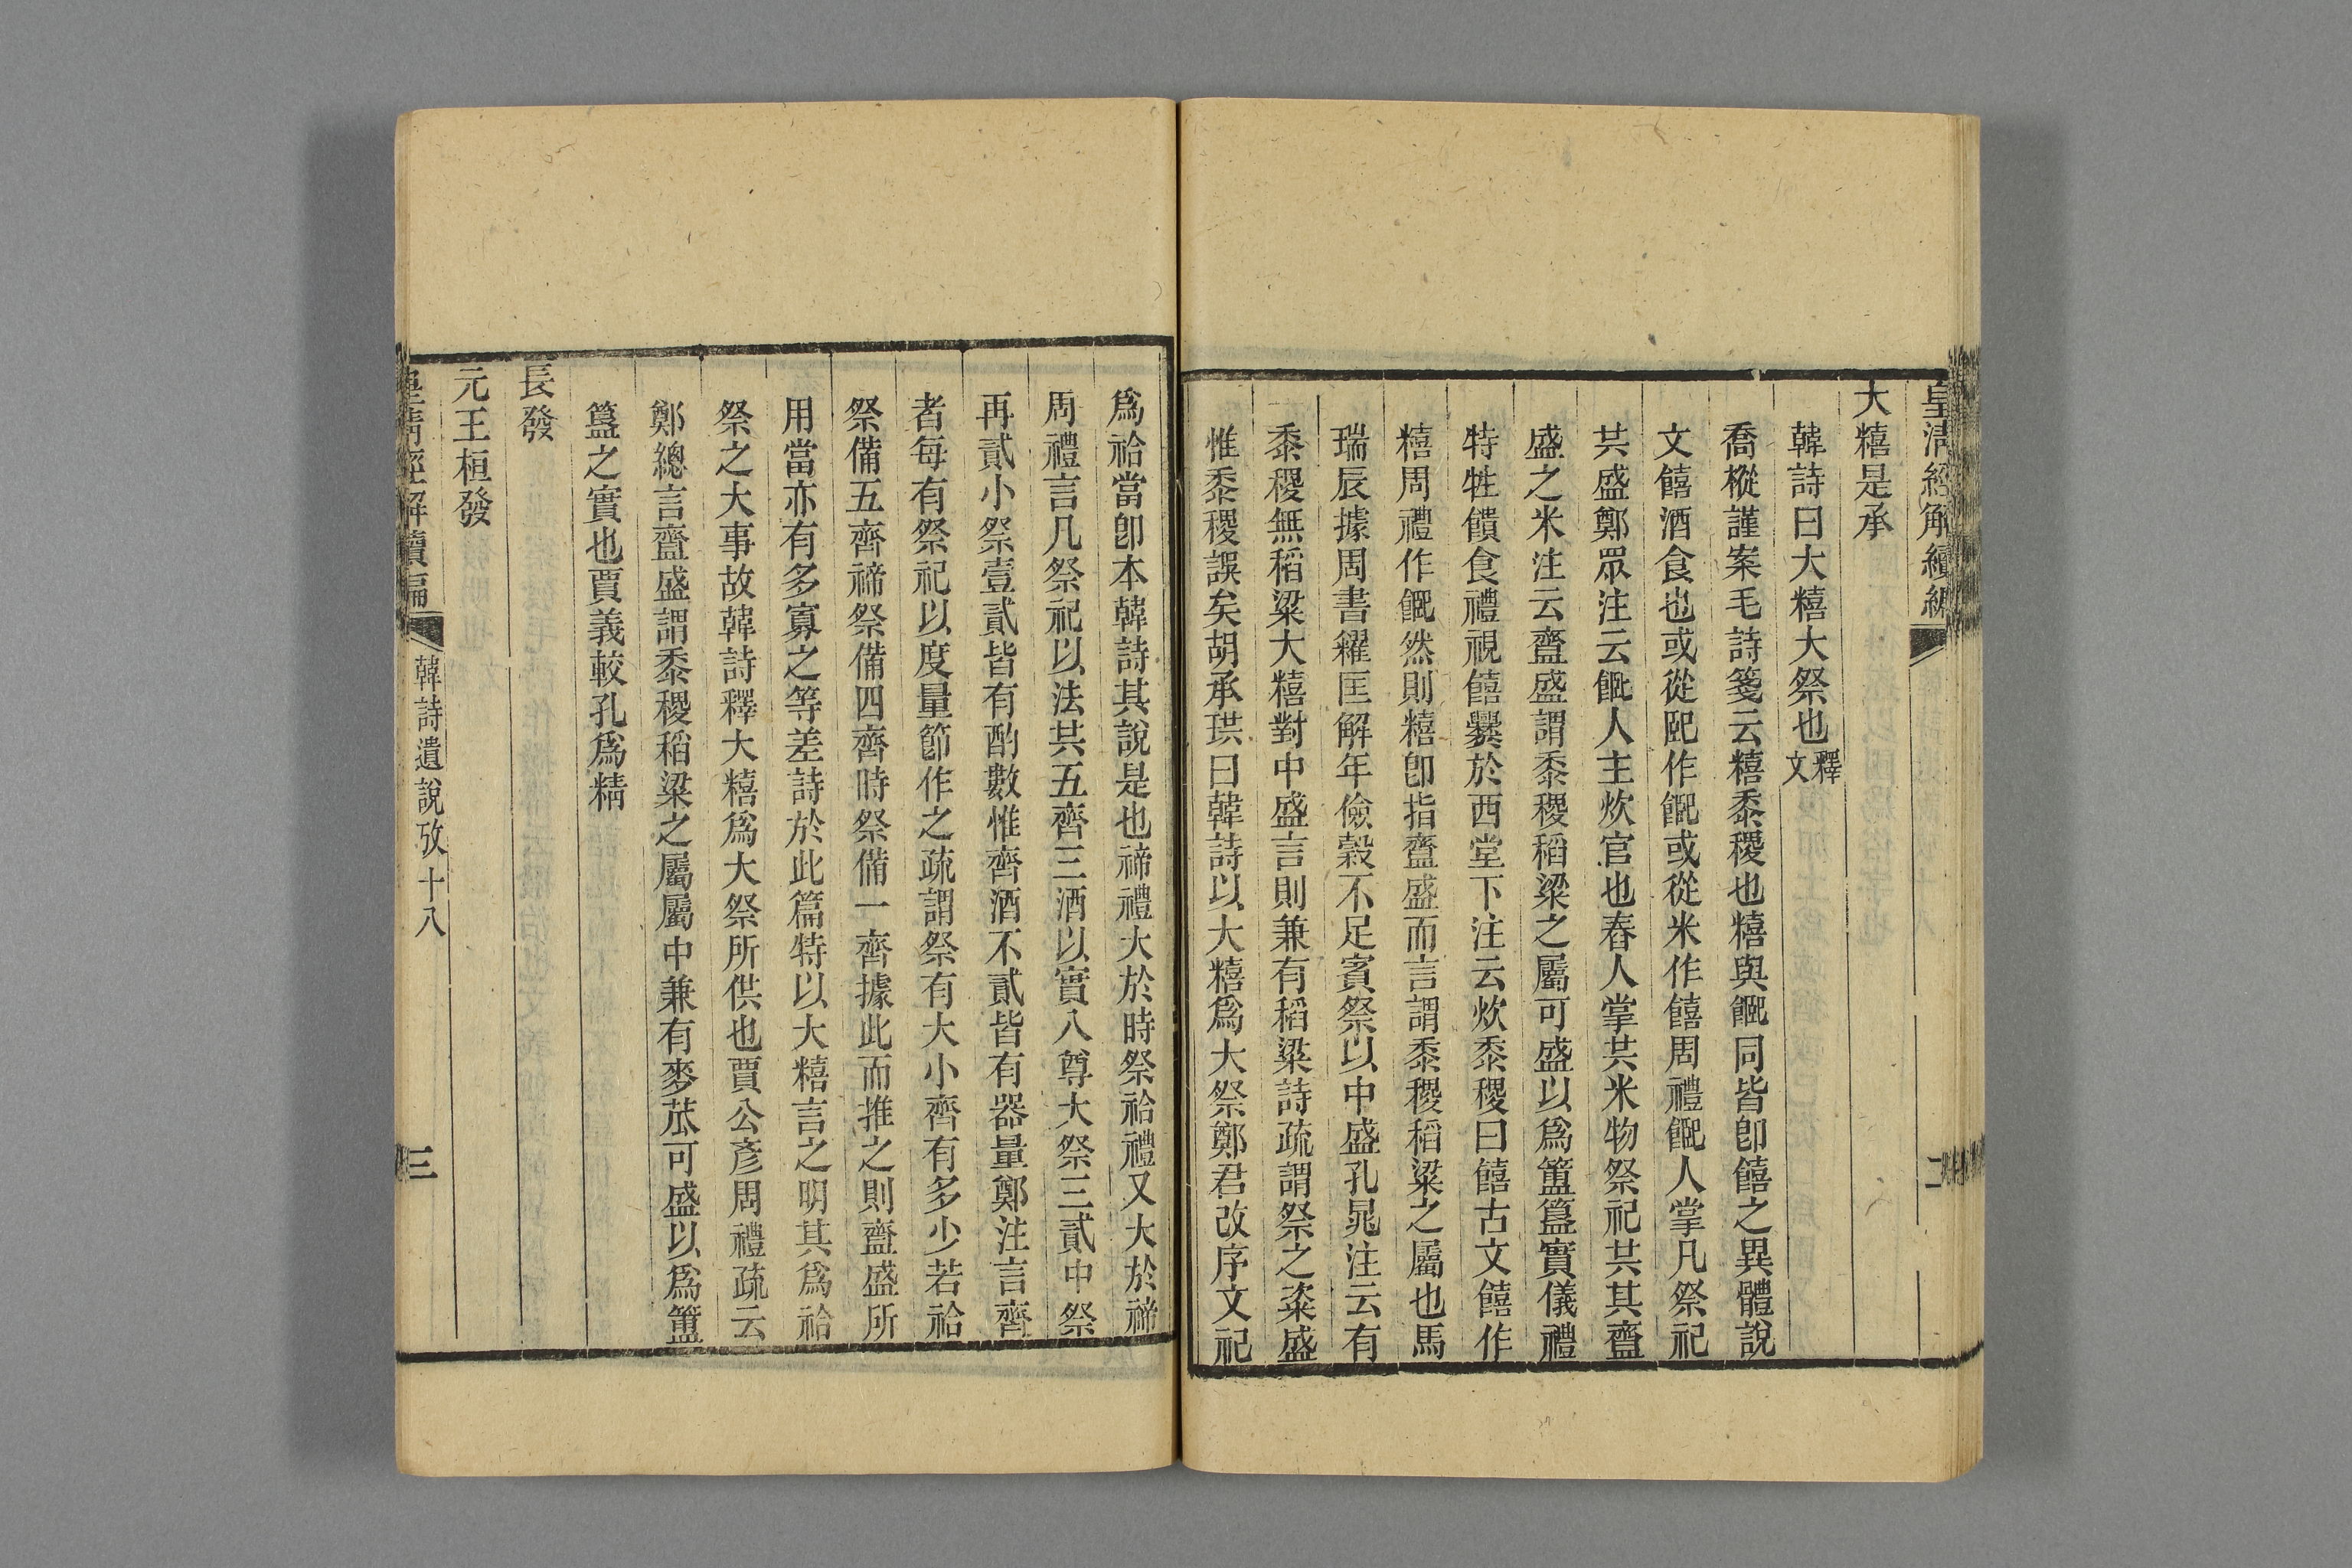 皇淸經解續編
二
大糦是承
韓詩曰大糦大祭也釋文
喬樅謹案毛詩箋云糦黍稷也糦與䭒同皆卽饎之異體說
文饎酒食也或從巸作䭒或從米作饎周禮䭒人掌凡祭祀
共盛鄭眾注云䭒人主炊官也舂人掌共米物祭祀共其齍
盛之米注云齍盛謂黍稷稻粱之屬可盛以爲簠簋實儀禮
特牲饋食禮視饎爨於西堂下注云炊黍稷曰饎古文饎作
糦周禮作䭒然則糦卽指齍盛而言謂黍稷稻粱之屬也馬
瑞辰據周書糴匡解年儉穀不足賓祭以中盛孔晁注云有
黍稷無稻粱大糦對中盛言則兼有稻粱詩疏謂祭之粢盛
惟黍稷誤矣胡承珙曰韓詩以大糦爲大祭鄭君改序文祀
爲祫當卽本韓詩其說是也禘禮大於時祭祫禮又大於禘
周禮言凡祭祀以法共五齊三酒以實八尊大祭三貳中祭
再貳小祭壹貳皆有酌數惟齊酒不貳皆有器量鄭注言齊
者每有祭祀以度量節作之疏謂祭有大小齊有多少若祫
祭備五齊禘祭備四齊時祭備一齊據此而推之則齍盛所
用當亦有多寡之等差詩於此篇特以大糦言之明其爲祫
祭之大事故韓詩釋大糦爲大祭所供也賈公彥周禮疏云
鄭總言齍盛謂黍稷稻粱之屬屬中兼有麥苽可盛以爲簠
簋之實也賈義較孔爲精
長發
元王桓發
皇淸經解續編
韓詩遺說攷十八
三